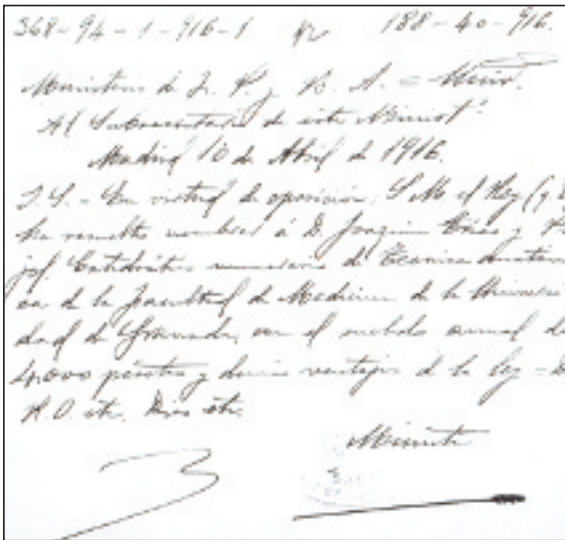 368-94-1-916-1 188-40-916.
Ministerio de I. P. y B. A. =
Al Subsecretario de este Minist.º
Madrid 10 de Abril de 1916.
I. S. - En virtud de oposicion, S. M. el Rey (q.
ha resuelto nombrar á D. Joaquin Trias y
jol Catedrático numerario de Tecnica Anatomi
ca de la Facultad de Medicina de la Universi
dad de Granada, con el sueldo anual de
4.000 pesetas y demas ventajas de la ley - D
R. O. etc. Dios etc.
Minuta